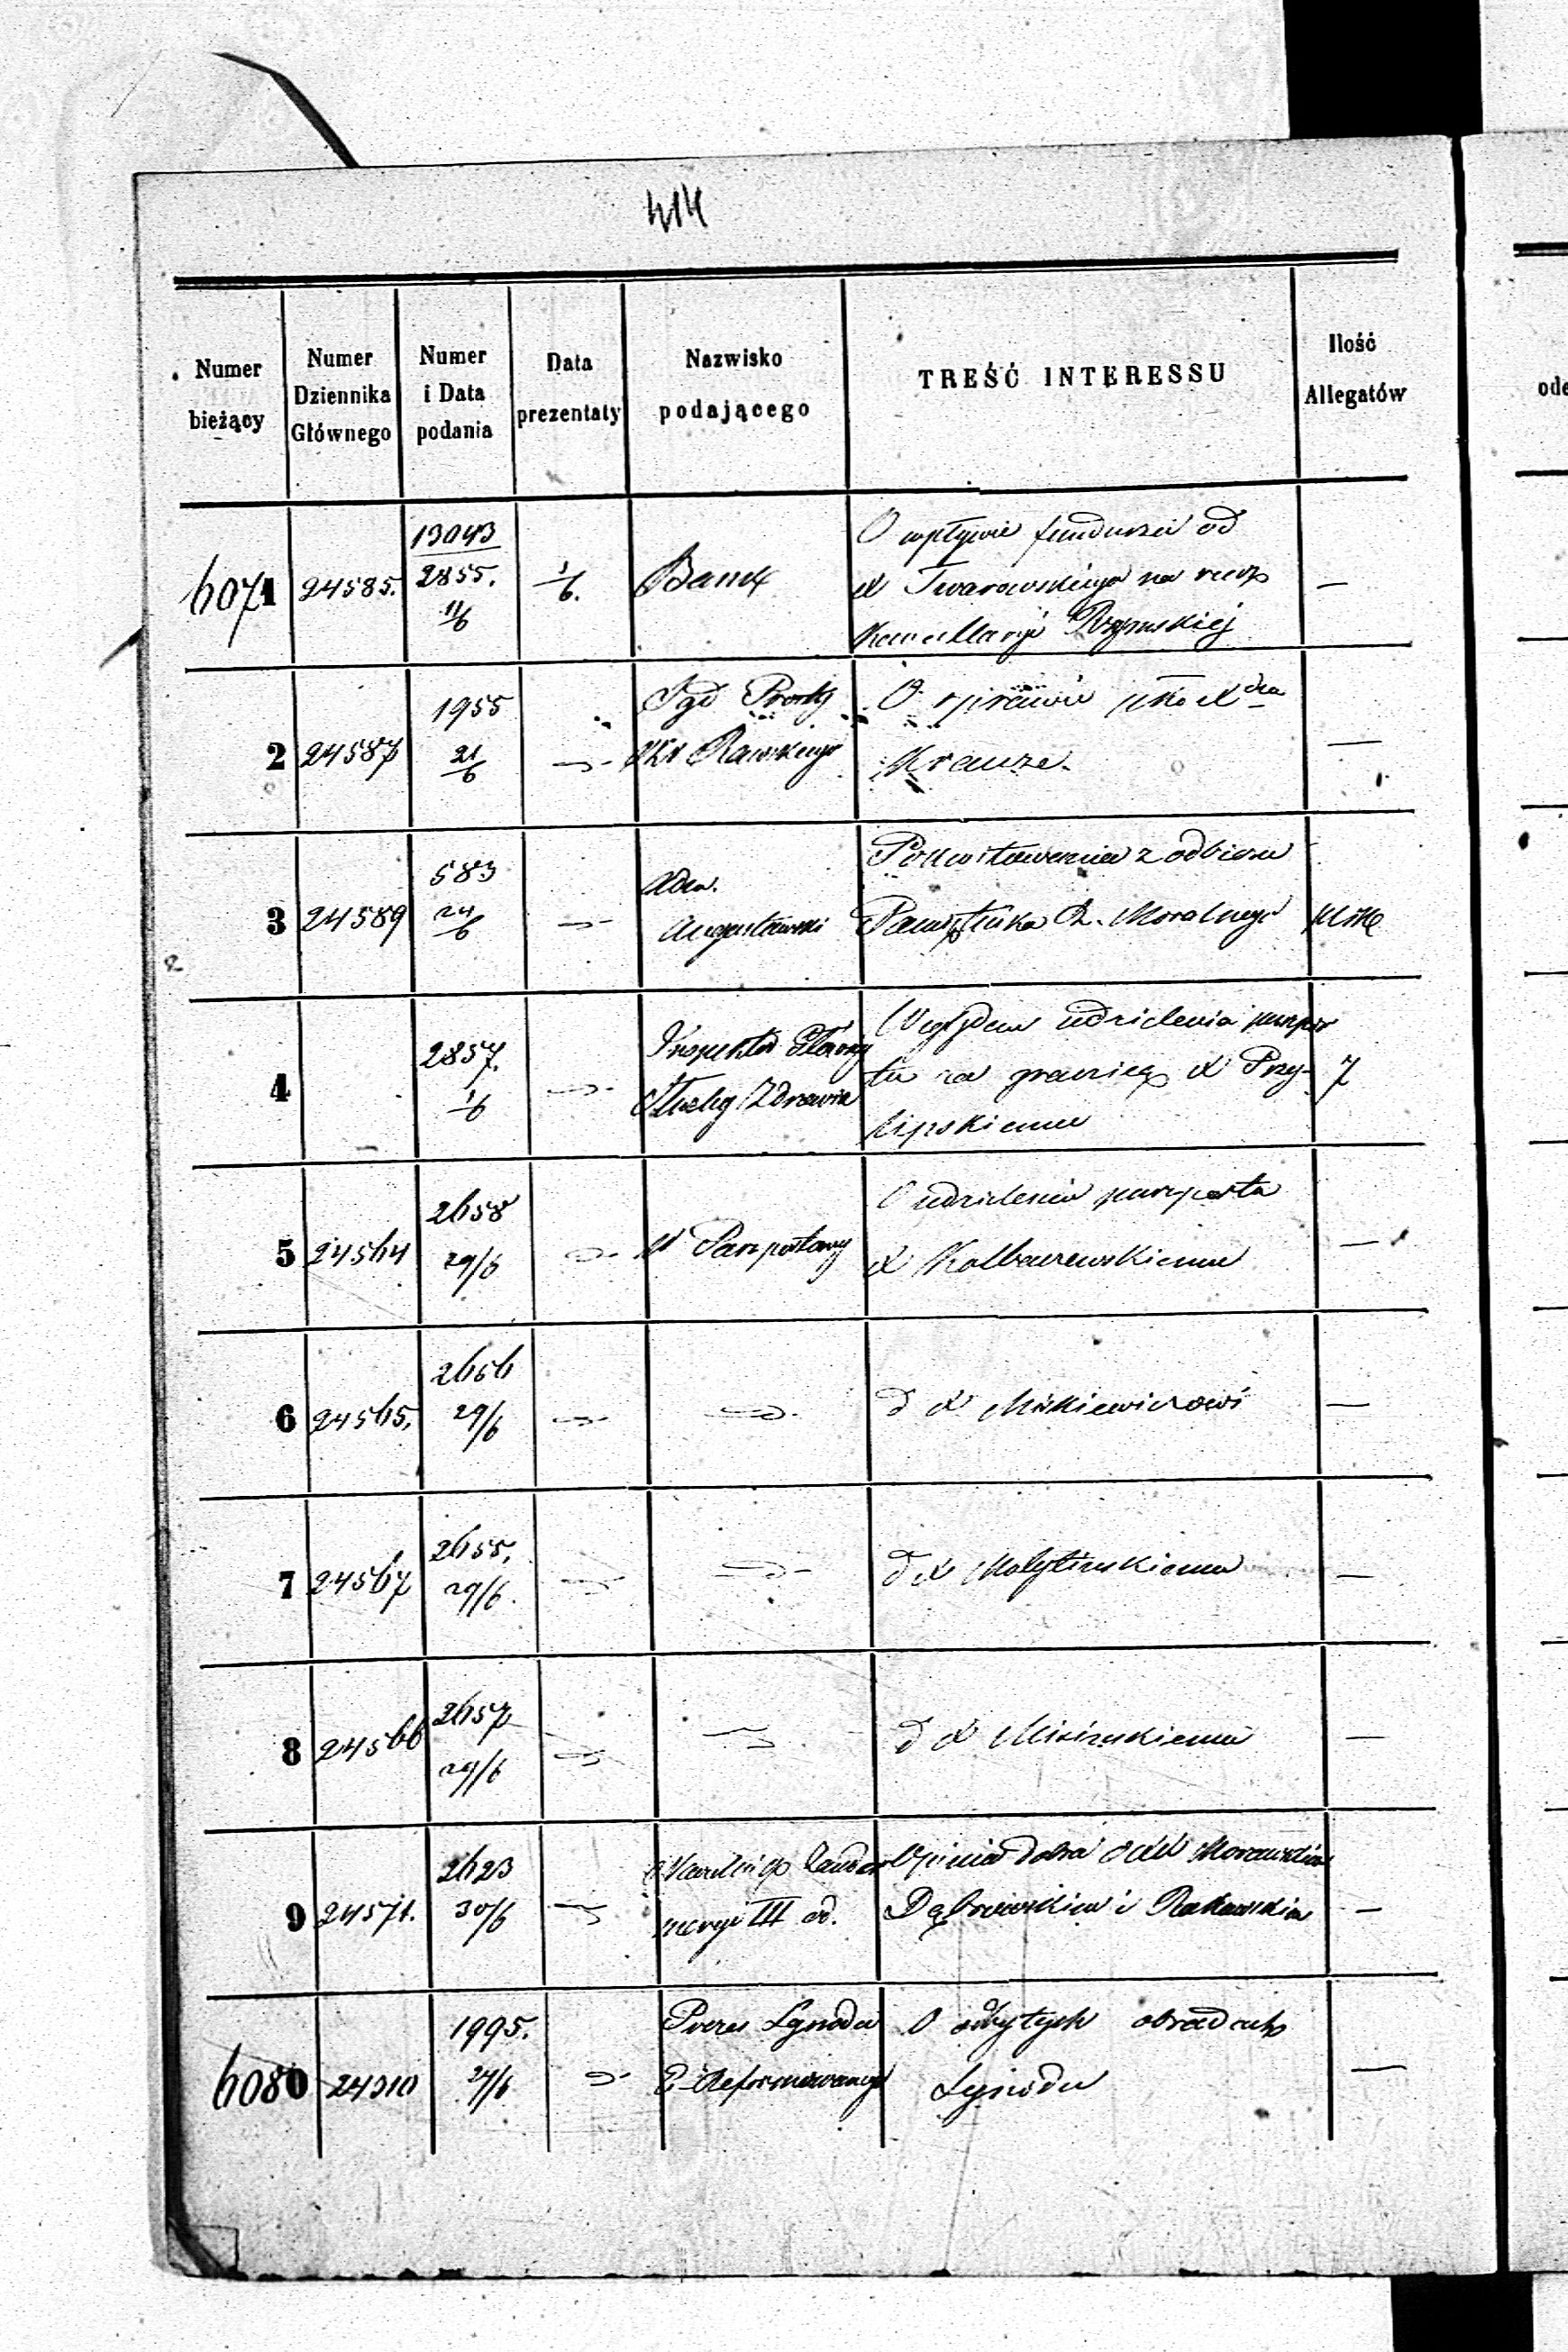 414
Numer bieżący
Numer Dziennika Głównego
Numer i Data podania
Data prezentaty
Nazwisko podającego
TREŚĆ INTERESSU
Ilość Allegatów
6071 24585. 13043 2855. 11/6 1/6. Bank
O wpływie funduszu od
X Twarowskiego na rzecz
Kancellaryi Rzymskiej
—
2 24587 1955 21/6
Sąd
Rawskiego
O sprawie
Krauze.
—
3 24589 583 24/6
Adm.
Augustowski
Pokwitowania z odbioru
Pamiętnika R. Moralnego
4 2857. 1/6
Inspektor Główny
Służby Zdrowia
Względem udzielenia paszpor
tu za granicę X Przy-
lipskiemu
7
5 24564 2658 29/6
W Paszportowy
O udzielenie paszportu
X Kolbaszewskiemu
—
6 24565. 2656 29/6
d X Mickiewiczowi
—
7 24567 2655. 29/6
d X
—
8 24566 2657 29/6
d X
—
9 24571. 2623 30/6
III
Opinia dobra o XX
Dąbrowskim i Rakowskim
—
6080 24310 1995. 27/6
Prezes Synodu
E-Reformowanego
O odbytych obradach
Synodu
—